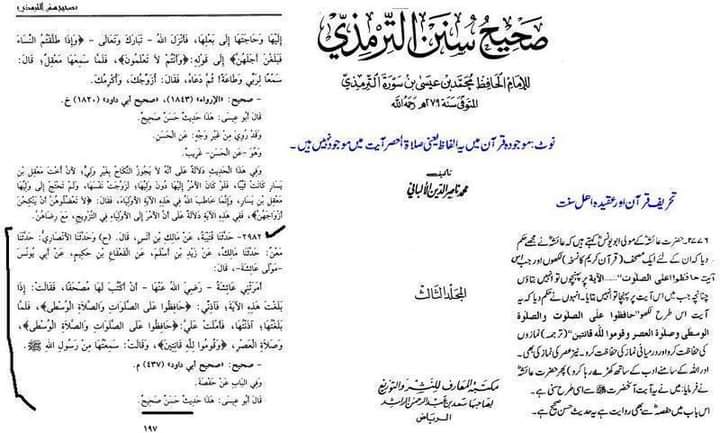 صحيح سنن الترمذي
إِلَيْهَا وَحَاجَتَهَا إِلَى بَعْلِهَا، فَأَنْزَلَ اللهُ - تَبَارَكَ وَتَعَالَى -: ﴿وَإِذَا طَلَّقْتُمُ النِّسَاءَ
فَبَلَغْنَ أَجَلَهُنَّ﴾ إِلَى قَوْلِهِ: ﴿وَأَنْتُمْ لَا تَعْلَمُونَ﴾، فَلَمَّا سَمِعَهَا مَعْقِلٌ؛ قَالَ:
سَمْعًا لِرَبِّي وَطَاعَةً! ثُمَّ دَعَاهُ، فَقَالَ: أُزَوِّجُكَ، وَأُكْرِمُكَ.
- صحيح: «الإرواء» (١٨٤٣)، «صحيح أبي داود» (١٨٢٠) خ.
قَالَ أَبُو عِيسَى: هَذَا حَدِيثٌ حَسَنٌ صَحِيحٌ.
وَقَدْ رُوِيَ مِنْ غَيْرِ وَجْهٍ، عَنِ الْحَسَنِ.
وَهُوَ - عَنِ الْحَسَنِ - غَرِيبٌ.
وَفِي هَذَا الْحَدِيثِ دَلَالَةٌ عَلَى أَنَّهُ لَا يَجُوزُ النِّكَاحُ بِغَيْرِ وَلِيٍّ؛ لأَنَّ أُخْتَ مَعْقِلِ بْنِ
يَسَارٍ كَانَتْ ثَيِّبًا، فَلَوْ كَانَ الأَمْرُ إِلَيْهَا دُونَ وَلِيِّهَا؛ لَزَوَّجَتْ نَفْسَهَا، وَلَمْ تَحْتَجْ إِلَى وَلِيِّهَا
مَعْقِلِ بْنِ يَسَارٍ، وَإِنَّمَا خَاطَبَ اللهُ فِي هَذِهِ الآيَةِ الأَوْلِيَاءَ، فَقَالَ: ﴿لَا تَعْضُلُوهُنَّ أَنْ يَنْكِحْنَ
أَزْوَاجَهُنَّ﴾، فَفِي هَذِهِ الآيَةِ دَلَالَةٌ عَلَى أَنَّ الأَمْرَ إِلَى الأَوْلِيَاءِ فِي التَّزْوِيجِ، مَعَ رِضَاهُنَّ.
٢٩٨٢- حَدَّثَنَا قُتَيْبَةُ، عَنْ مَالِكِ بْنِ أَنَسٍ. قَالَ: (ح) وَحَدَّثَنَا الأَنْصَارِيُّ: حَدَّثَنَا
مَعْنٌ: حَدَّثَنَا مَالِكٌ، عَنْ زَيْدِ بْنِ أَسْلَمَ، عَنِ الْقَعْقَاعِ بْنِ حَكِيمٍ، عَنْ أَبِي يُونُسَ
- مَوْلَى عَائِشَةَ -، قَالَ:
أَمَرَتْنِي عَائِشَةُ - رَضِيَ اللهُ عَنْهَا - أَنْ أَكْتُبَ لَهَا مُصْحَفًا، فَقَالَتْ: إِذَا
بَلَغْتَ هَذِهِ الآيَةَ؛ فَآذِنِّي: ﴿حَافِظُوا عَلَى الصَّلَوَاتِ وَالصَّلَاةِ الْوُسْطَى﴾، فَلَمَّا
بَلَغْتُهَا؛ آذَنْتُهَا، فَأَمْلَتْ عَلَيَّ: ﴿حَافِظُوا عَلَى الصَّلَوَاتِ وَالصَّلَاةِ الْوُسْطَى،
وَصَلَاةِ الْعَصْرِ، ﴿وَقُومُوا لِلَّهِ قَانِتِينَ﴾، وَقَالَتْ: سَمِعْتُهَا مِنْ رَسُولِ اللهِ ﷺ.
- صحيح: «صحيح أبي داود» (٤٣٧) م.
وَفِي الْبَابِ عَنْ حَفْصَةَ.
قَالَ أَبُو عِيسَى: هَذَا حَدِيثٌ حَسَنٌ صَحِيحٌ.
١٩٧
صحيح سنن الترمذي
للإمام الحافظ محمد بن عيسى بن سورة الترمذي
المتوفى سنة ٢٧٩هـ رحمه الله
نوٹ: موجودہ قرآن میں یہ الفاظ یعنی صلاۃ العصر آیت میں موجود نہیں ہیں۔
تأليف
محمد ناصر الدين الألباني
المجلد الثالث
مكتبة المعارف للنشر والتوزيع
لصاحبها سعد بن عبد الرحمن الراشد
الرياض
تحریف قرآن اور عقیدہ اهل سنت
۲۷۷٦۔ حضرت عائشہؓ کے مولی ابو یونس کہتے ہیں کہ عائشہؓ نے مجھے حکم
دیا کہ ان کے لئے ایک مصحف (قرآن کریم کا نسخہ) لکھوں اور جب اس
آیت حافظوا علی الصلوت..... الآیۃ پر پہنچوں تو انہیں بتاؤں
چنانچہ جب میں اس آیت پر پہنچا تو انہیں بتایا۔ انہوں نے حکم دیا کہ یہ
آیت اس طرح لکھو "حافظوا علی الصلوت والصلوۃ
الوسطی وصلوۃ العصر وقوموا للہ قانتین" (ترجمہ) نمازوں
کی حفاظت کرو اور درمیانی نماز کی حفاظت کرو۔ نیز عصر کی نماز کی بھی۔
اور اللہ کے سامنے ادب کے ساتھ کھڑے رہا کرو) پھر حضرت عائشہؓ
نے فرمایا: میں نے یہ آیت آنحضرت ﷺ سے اسی طرح سنی ہے۔
اس باب میں حفصہؓ سے بھی روایت ہے یہ حدیث حسن صحیح ہے۔